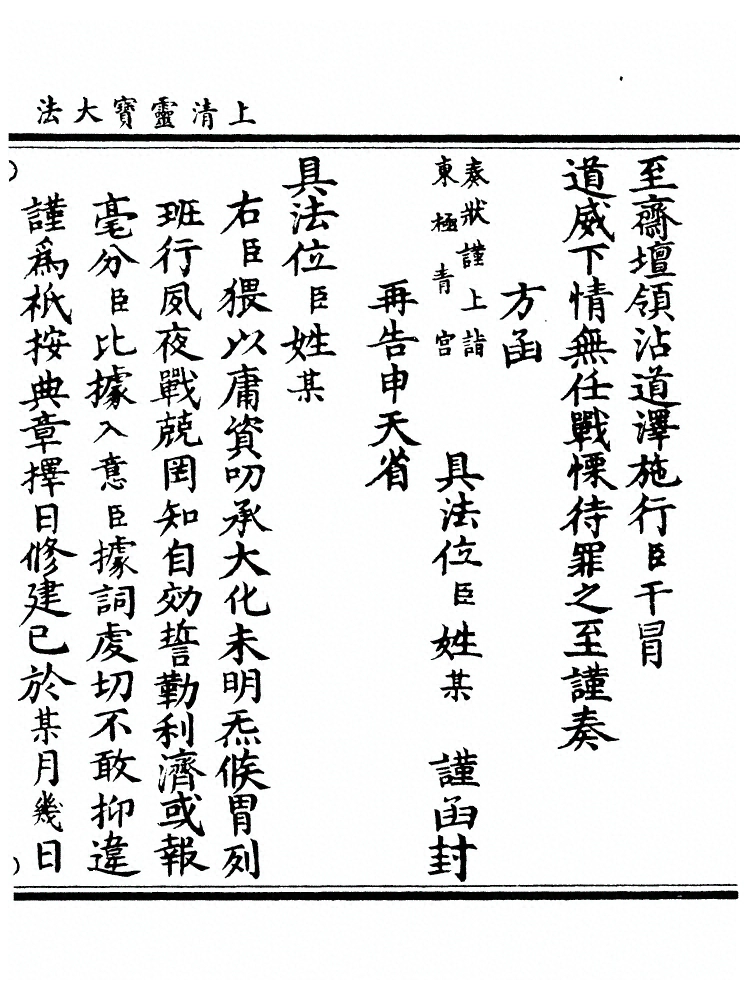 上清靈寶大法
至齋壇領沾道澤施行臣干冒
道威下情無任戰慄待罪之至謹奏
方函
奏狀謹上詣
東極青宮
具法位臣姓某 謹函封
再告申天省
具法位臣姓某
右臣猥以庸資叨承大化未明炁候冐列
班行夙夜戰兢罔知自効誓勤利濟或報
毫分臣比據入意臣據詞虔切不敢抑違
謹為祇按典章擇日修建已於某月幾日